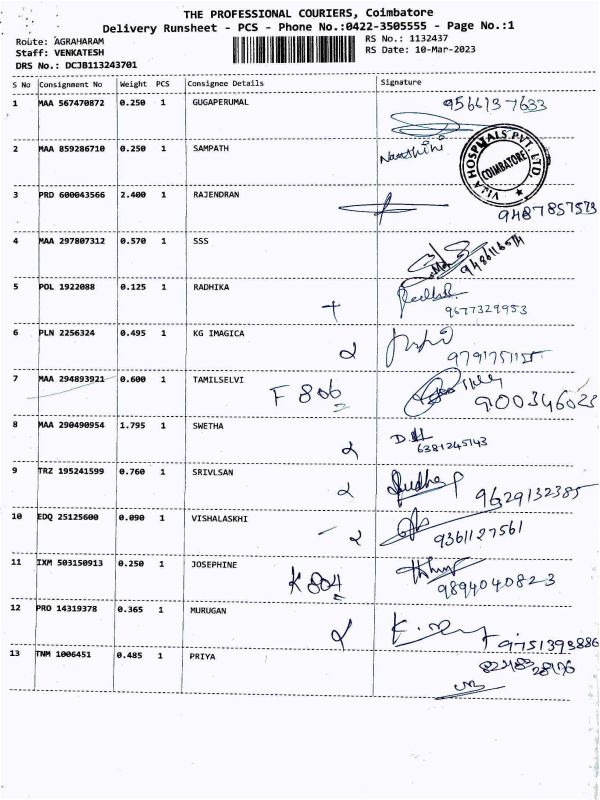 THE PROFESSIONAL COURIERS, Coimbatore
Delivery Runsheet - PCS - Phone No.:0422-3505555 - Page No.:1
Route: AGRAHARAM RS No.: 1132437
Staff: VENKATESH RS Date: 10-Mar-2023
DRS No.: DCJB113243701
S No Consignment No Weight PCS Consignee Details Signature
1 MAA 567470872 0.250 1 GUGAPERUMAL 9566137633
2 MAA 859286710 0.250 1 SAMPATH Nanthini
HOSPITALS PVT. LTD.
COIMBATORE
3 PRD 600043566 2.400 1 RAJENDRAN 9487857573
4 MAA 297807312 0.570 1 SSS 9486116514
5 POL 1922088 0.125 1 RADHIKA 9677329953
6 PLN 2256324 0.495 1 KG IMAGICA
7 MAA 294893921 0.600 1 TAMILSELVI F 806
8 MAA 290490954 1.795 1 SWETHA 6381245143
9 TRZ 195241599 0.760 1 SRIVLSAN 9629132385
10 EDQ 25125600 0.090 1 VISHALASKHI 9361127561
11 IXM 503150913 0.250 1 JOSEPHINE K 804 9894040823
12 PRO 14319378 0.365 1 MURUGAN 9751393886
13 TNM 1006451 0.485 1 PRIYA